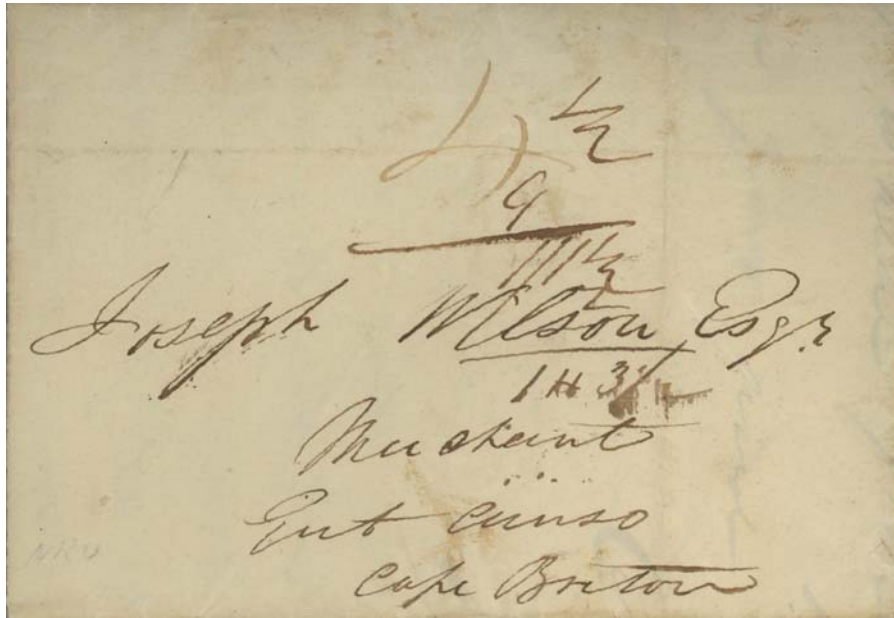 4 1/2
9
1 1 1/2
Joseph Wilson Esqr
1 H 3 1/2
Merchant
Gut Canso
Cape Breton